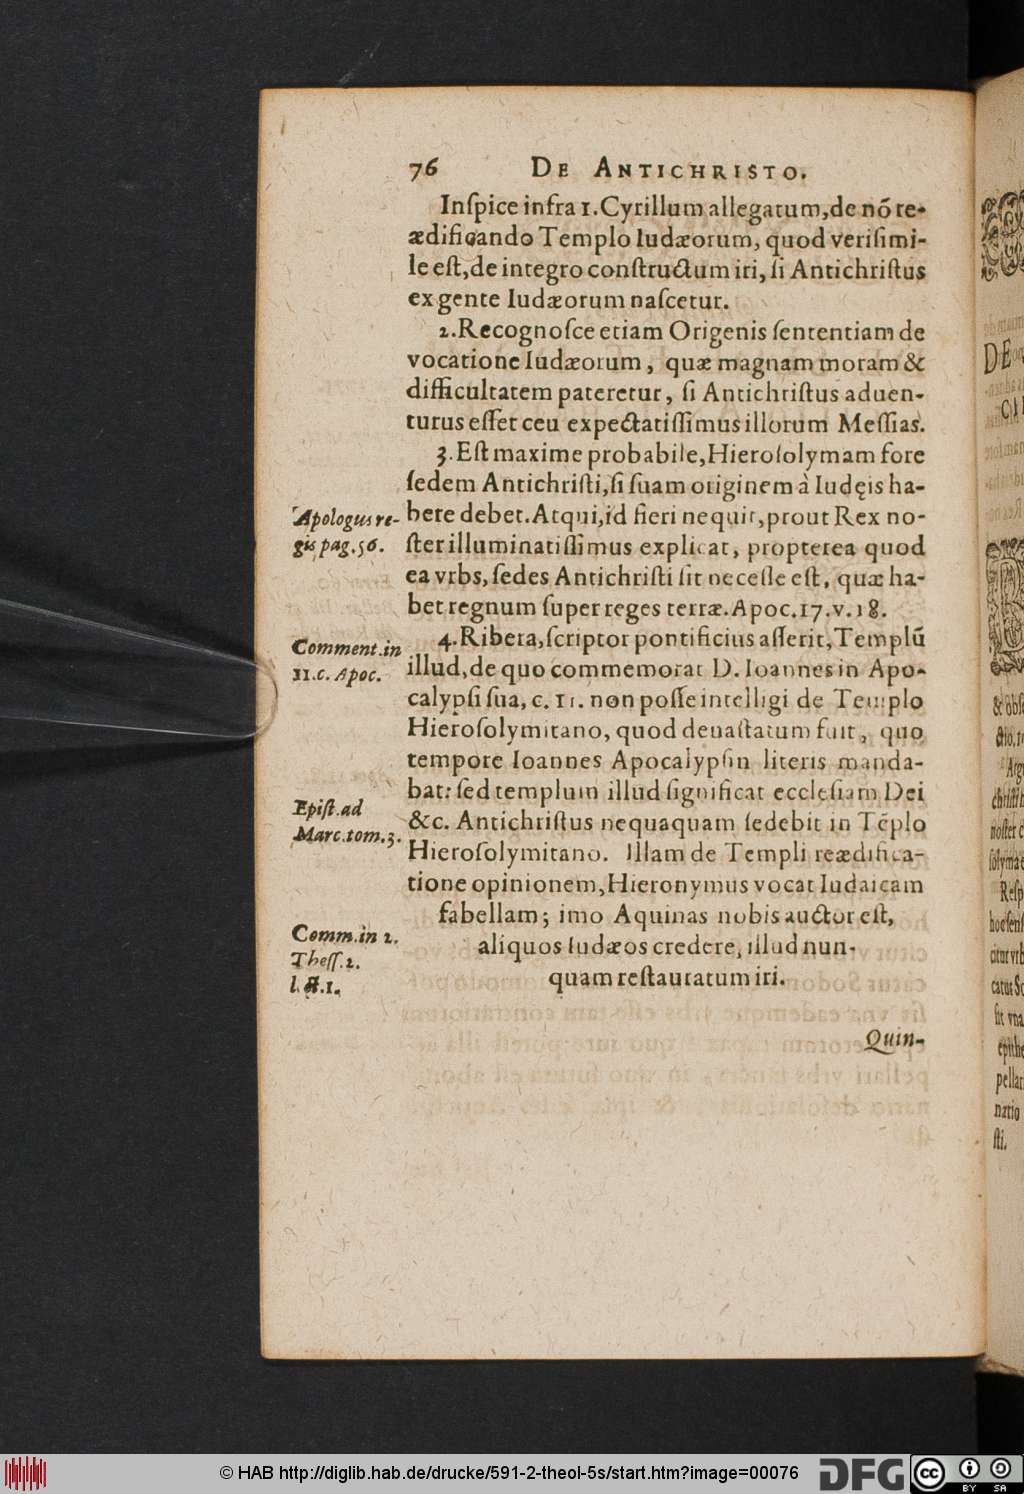 76 De Antichristo.
Inſpice infra 1. Cyrillum allegatum, de nō re-
ædificando Templo Iudæorum, quod veriſimi-
le eſt, de integro conſtructum iri, ſi Antichriſtus
ex gente Iudæorum naſcetur.
2. Recognoſce etiam Origenis ſententiam de
vocatione Iudæorum, quæ magnam moram &
difficultatem pateretur, ſi Antichriſtus aduen-
turus eſſet ceu expectatiſſimus illorum Meſſias.
3. Eſt maxime probabile, Hieroſolymam fore
ſedem Antichriſti, ſi ſuam originem à Iudęis ha-
bere debet. Atqui, id fieri nequit, prout Rex no-
ſter illuminatiſſimus explicat, propterea quod
ea vrbs, ſedes Antichriſti ſit neceſſe eſt, quæ ha-
bet regnum ſuper reges terræ. Apoc. 17. v. 18.
Apologus re-
gis pag. 56.
4. Ribera, ſcriptor pontificius aſſerit, Templū
illud, de quo commemorat D. Ioannes in Apo-
calypſi ſua, c. 11. non poſſe intelligi de Templo
Hieroſolymitano, quod deuaſtatum fuit, quo
tempore Ioannes Apocalypſin literis manda-
bat: ſed templum illud ſignificat eccleſiam Dei
&c. Antichriſtus nequaquam ſedebit in Tēplo
Hieroſolymitano. Illam de Templi reædifica-
tione opinionem, Hieronymus vocat Iudaicam
fabellam; imo Aquinas nobis auctor eſt,
aliquos Iudæos credere, illud nun-
quam reſtauratum iri.
Comment. in
11. c. Apoc.
Epiſt. ad
Marc. tom. 3.
Comm. in 2.
Theſſ. 2.
Quin-
DE
© HAB http://diglib.hab.de/drucke/591-2-theol-5s/start.htm?image=00076
DFG
cc
BY SA